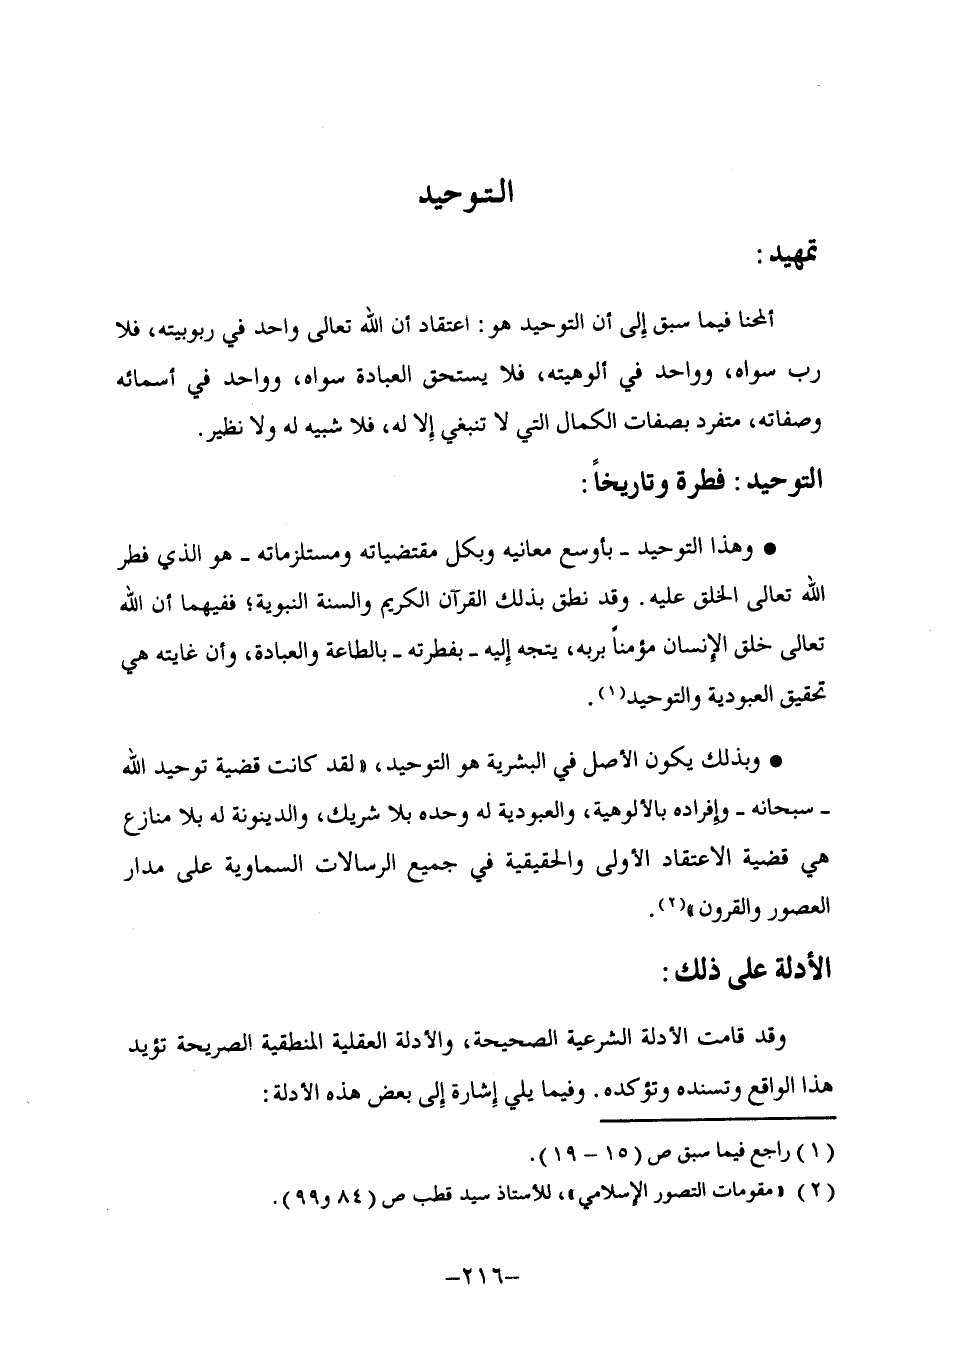 التوحيد
تمهيد :
ألمحنا فيما سبق إلى أن التوحيد هو : اعتقاد أن الله تعالى واحد في ربوبيته، فلا
رب سواه، وواحد في ألوهيته، فلا يستحق العبادة سواه، وواحد في أسمائه
وصفاته، متفرد بصفات الكمال التي لا تنبغي إلا له، فلا شبيه له ولا نظير.
التوحيد : فطرة وتاريخاً :
● وهذا التوحيد ـ بأوسع معانيه وبكل مقتضياته ومستلزماته ـ هو الذي فطر
الله تعالى الخلق عليه. وقد نطق بذلك القرآن الكريم والسنة النبوية؛ ففيهما أن الله
تعالى خلق الإنسان مؤمناً بربه، يتجه إليه ـ بفطرته ـ بالطاعة والعبادة، وأن غايته هي
تحقيق العبودية والتوحيد(١).
● وبذلك يكون الأصل في البشرية هو التوحيد، «لقد كانت قضية توحيد الله
ـ سبحانه ـ وإفراده بالألوهية، والعبودية له وحده بلا شريك، والدينونة له بلا منازع
هي قضية الاعتقاد الأولى والحقيقية في جميع الرسالات السماوية على مدار
العصور والقرون»(٢).
الأدلة على ذلك :
وقد قامت الأدلة الشرعية الصحيحة، والأدلة العقلية المنطقية الصريحة تؤيد
هذا الواقع وتسنده وتؤكده. وفيما يلي إشارة إلى بعض هذه الأدلة :
(١) راجع فيما سبق ص (١٥ – ١٩).
(٢) «مقومات التصور الإسلامي»، للأستاذ سيد قطب ص (٨٤ و٩٩).
–٢١٦–